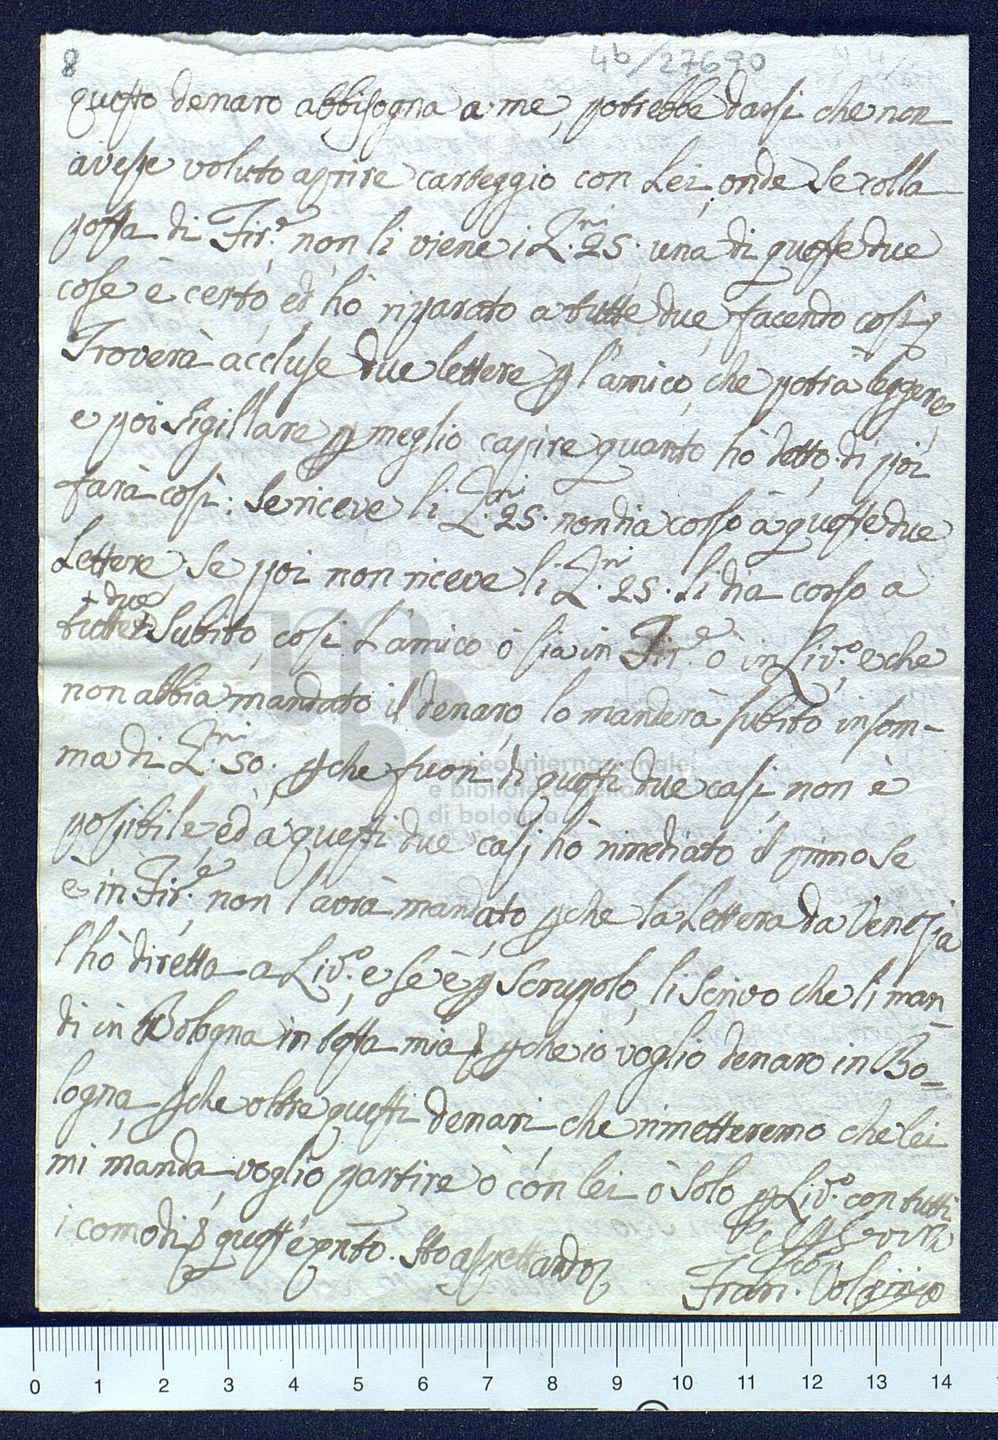 8 4b/27690
questo denaro abbisogna a me, potrebbe darsi che non
avesse voluto aprire carteggio con Lei, onde se colla
posta di Fir.e non li viene i Z.ni 25. una di queste due
cose è certo, ed hò riparato a tutte due, facendo così
Troverà accluse due lettere p l'amico, che potrà leggere,
e poi sigillare p meglio capire quanto hò detto. di poi
farà così: se riceve li Z.ni 25. non dia corso à queste due
Lettere, se poi non riceve li Z.ni 25. li dia corso a
+ due
tutte + subito, così l'amico ò sia in Fir.e ò in Liv.o e che
non abbia mandato il denaro, lo manderà subito in som-
ma di Z.ni 50. pche fuori di questi due casi non è
possibile, ed a questi due casi hò rimediato il primo se
è in Fir.e non l'avrà mandato pche la Lettera da Venezia
l'hò diretta a Liv.o e se è p scrupolo, li scrivo che li man
di in Bologna in testa mia pche io voglio denaro in Bo=
logna, pche oltre questi denari che rimetteremo che lei
mi manda voglio partire ò con lei ò solo p Liv.o con tutti
i comodi, e quest'è pnto. Sto aspettando
Fran.co
museo internazionale
e biblioteca della
di bologna
0 1 2 3 4 5 6 7 8 9 10 11 12 13 14